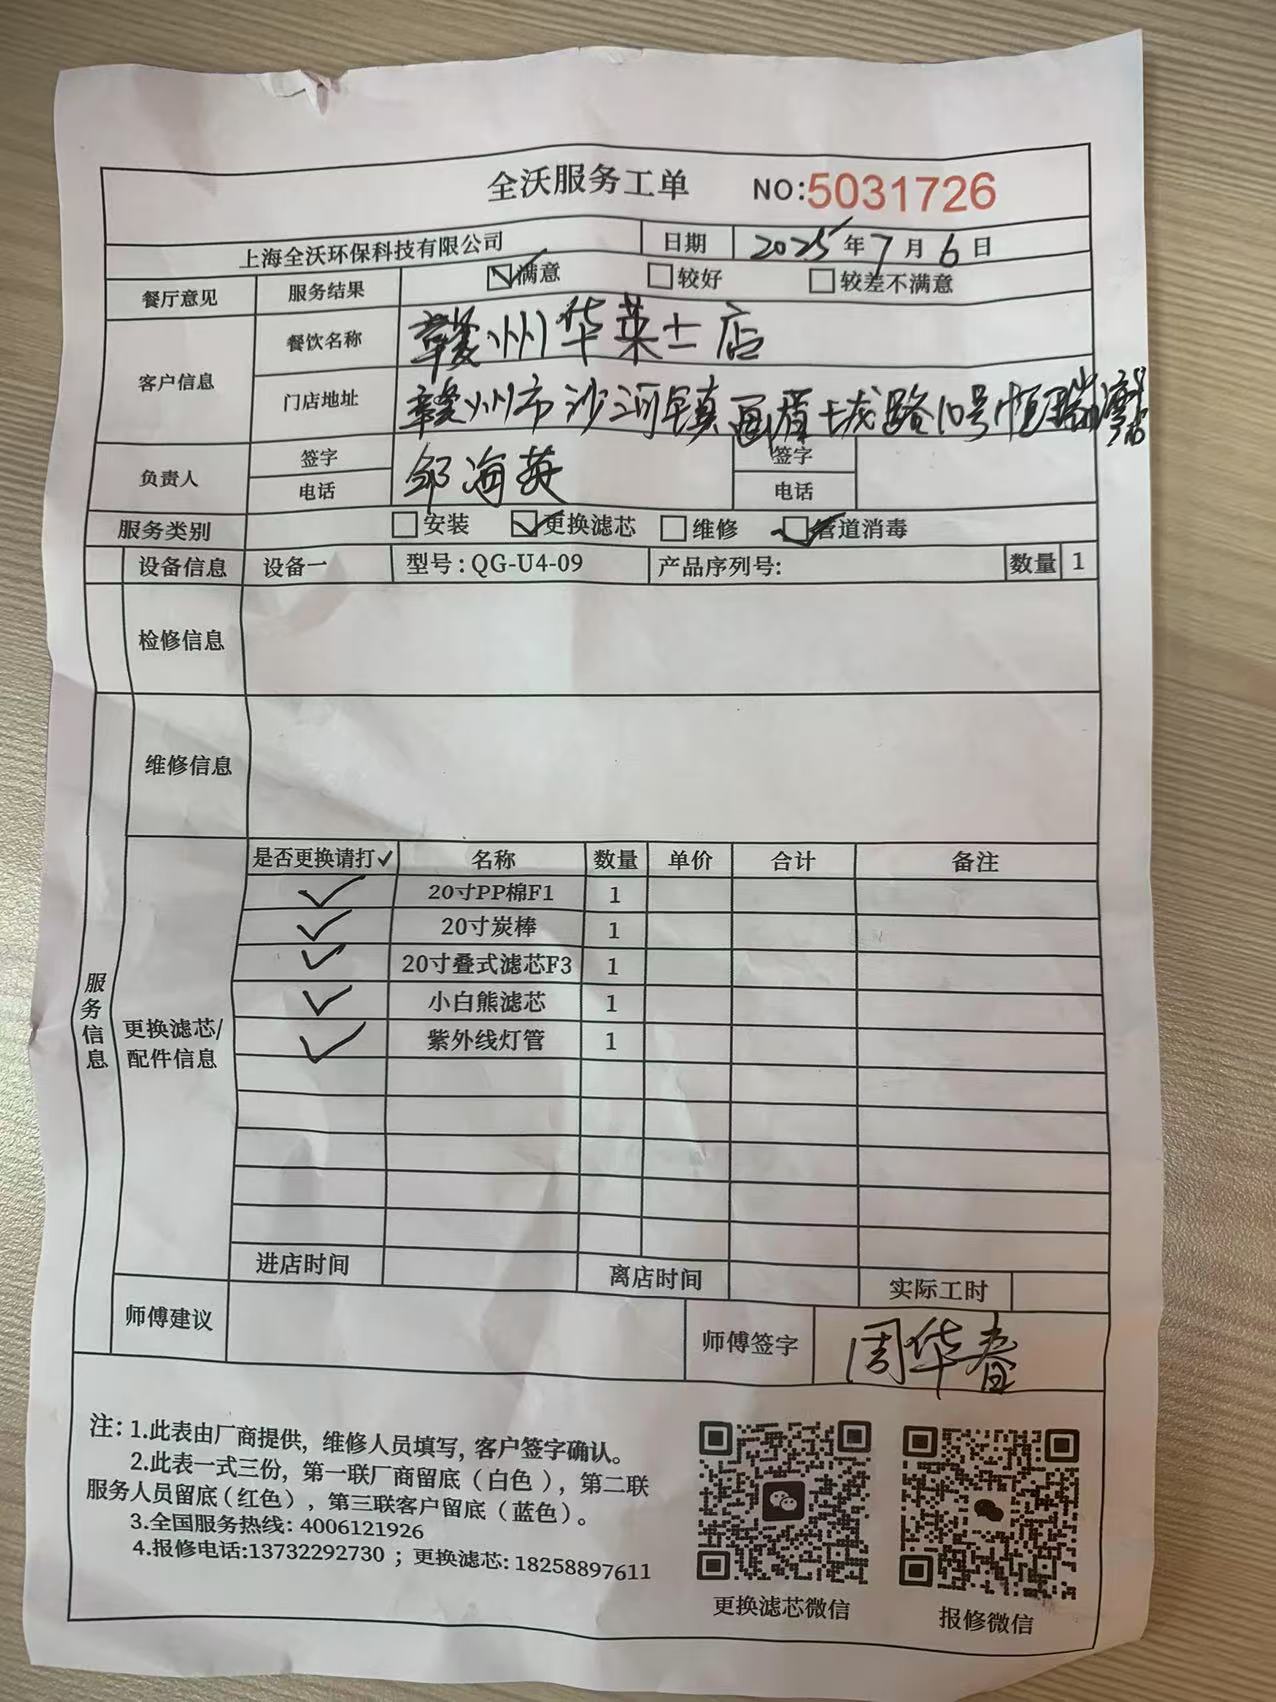 全沃服务工单 NO:5031726
上海全沃环保科技有限公司 日期 2025年7月6日
餐厅意见 服务结果 满意 较好 较差不满意
客户信息 餐饮名称 赣州华莱士店
门店地址 赣州市沙河镇画眉土城路10号恒瑞
负责人 签字 邹海英 签字
电话 电话
服务类别 安装 更换滤芯 维修 管道消毒
设备信息 设备一 型号:QG-U4-09 产品序列号: 数量 1
检修信息
维修信息
服务信息
更换滤芯/配件信息
是否更换请打✓ 名称 数量 单价 合计 备注
✓ 20寸PP棉F1 1
✓ 20寸炭棒 1
✓ 20寸叠式滤芯F3 1
✓ 小白熊滤芯 1
✓ 紫外线灯管 1
进店时间 离店时间 实际工时
师傅建议 师傅签字 周华春
注:1.此表由厂商提供,维修人员填写,客户签字确认。
2.此表一式三份,第一联厂商留底(白色),第二联
服务人员留底(红色),第三联客户留底(蓝色)。
3.全国服务热线:4006121926
4.报修电话:13732292730;更换滤芯:18258897611
更换滤芯微信 报修微信